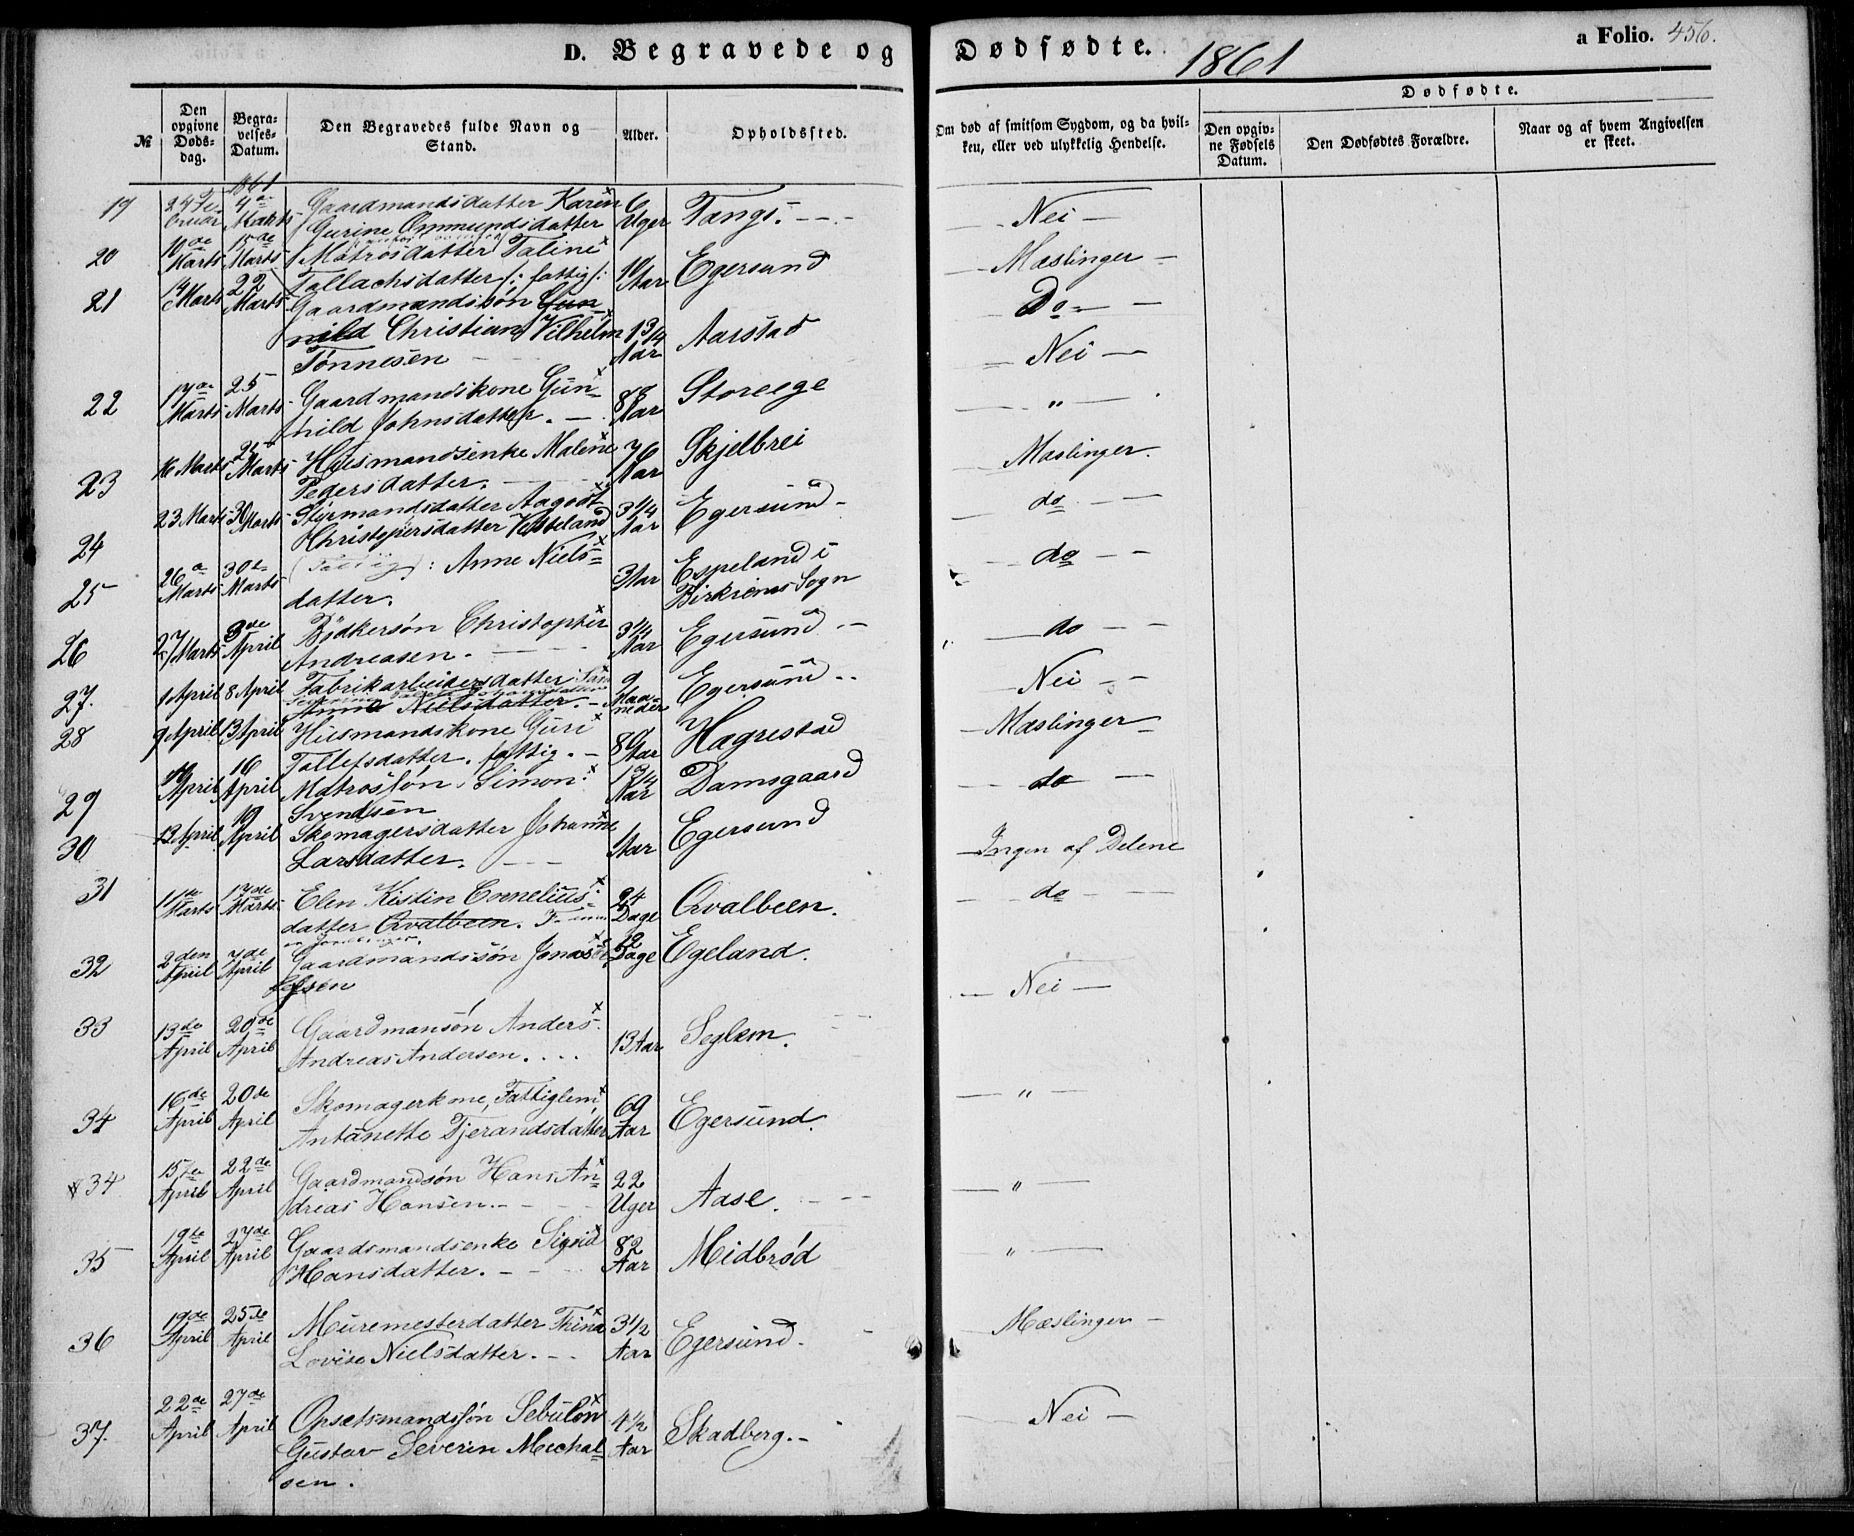 D. Begravede og Dødfødte. 1861 a Folio. 456.
№
Den opgivne Døds-dag.
Begra-velses-Datum.
Den Begravedes fulde Navn og Stand.
Alder.
Opholdssted.
Om død af smitsom Sygdom, og da hvil-ken, eller ved ulykkelig Hendelse.
Dødfødte.
Den opgiv-ne Fødsels Datum.
Den Dødfødtes Forældre.
Naar og af hvem Angivelsen er skeet.
1861
19 24 Fe- 4de Gaardmandsdatter Karen 6 Tangs. Nei
bruar Marts Gurine Ommundsdatter Uger
20 10de 15de Matrosdatter Taline 10 Egersund Mæslinger
Marts Marts Tollachsdatter /: fattig /: Aar
21 14 Marts 22 Marts Gaardmandssøn Gun- Do
nild Christian Vilhelm 1 3/4 Aarstad Nei
Tønnesen Aar
22 17de 25 Gaardmandskone Gun- 88 Storeege "
Marts Marts nild Johnsdatter. Aar
23 16 Marts 25 Marts Huusmandsenke Malene 76 Skjelbrei Mæslinger.
Pedersdatter. Aar
24 23 Marts 30 Marts Styrmandsdatter Aagodt 3 1/4 Egersund do
Christophersdatter Vesteland Aar
25 26de 30te (Fattig) : Anne Niels- 3 Aar Espeland i do
Marts Marts datter. Birkrems Sogn
26 27 Marts 3de April Bødkersøn Christopher 3 1/4 Egersund do
Andreasen. Aar
27. 1 April 8 April Fabrikarbeidersdatter 9 Egersund Nei
Anne Nielsdatter. Maa-neder
28 9 April 13 April Huusmandskone Guri 80 Hægrestad Mæslinger
Tollefsdatter. fattig. Aar
29 April 16 April Matrossøn Simon 1 3/4 Damsgaard do
Svendsen Aar
30 13 April 19 April Skomagersdatter Johanne 1 Aar Egersund Ingen af Delene
Larsdatter.
31 11de 17de Elen Kistin Cornelius- 24 Qvalbeen. do
Marts Marts datter Qvalbeen. Dage
32 2den 7de Gaardmandssøn Jonas 12 Egeland. Nei
April April Dage
33 13de 20de Gaardmansøn Anders 13 Aar Seglem.
April April Andreas Andersen.
34 16de 20de Skomagerkone, Fattiglem 69 Egersund. "
April April Antanette Tjerandsdatter Aar
34 15de 22de Gaardmandsøn Hans An- 22 Aase. "
April April dreas Hansen. Uger
35 19de 27de Gaardsmandsenke Sigrid 82 Midbrød "
April April Hansdatter. Aar
36 19de 25de Muremesterdatter Thina 3 1/2 Egersund. Mæslinger
April April Lovise Nielsdatter. Aar
37. 22de 27de Opsetsmandssøn Sebulon 4 1/2 Skadberg. Nei
April April Gustav Severin Mechal- Aar
sen.